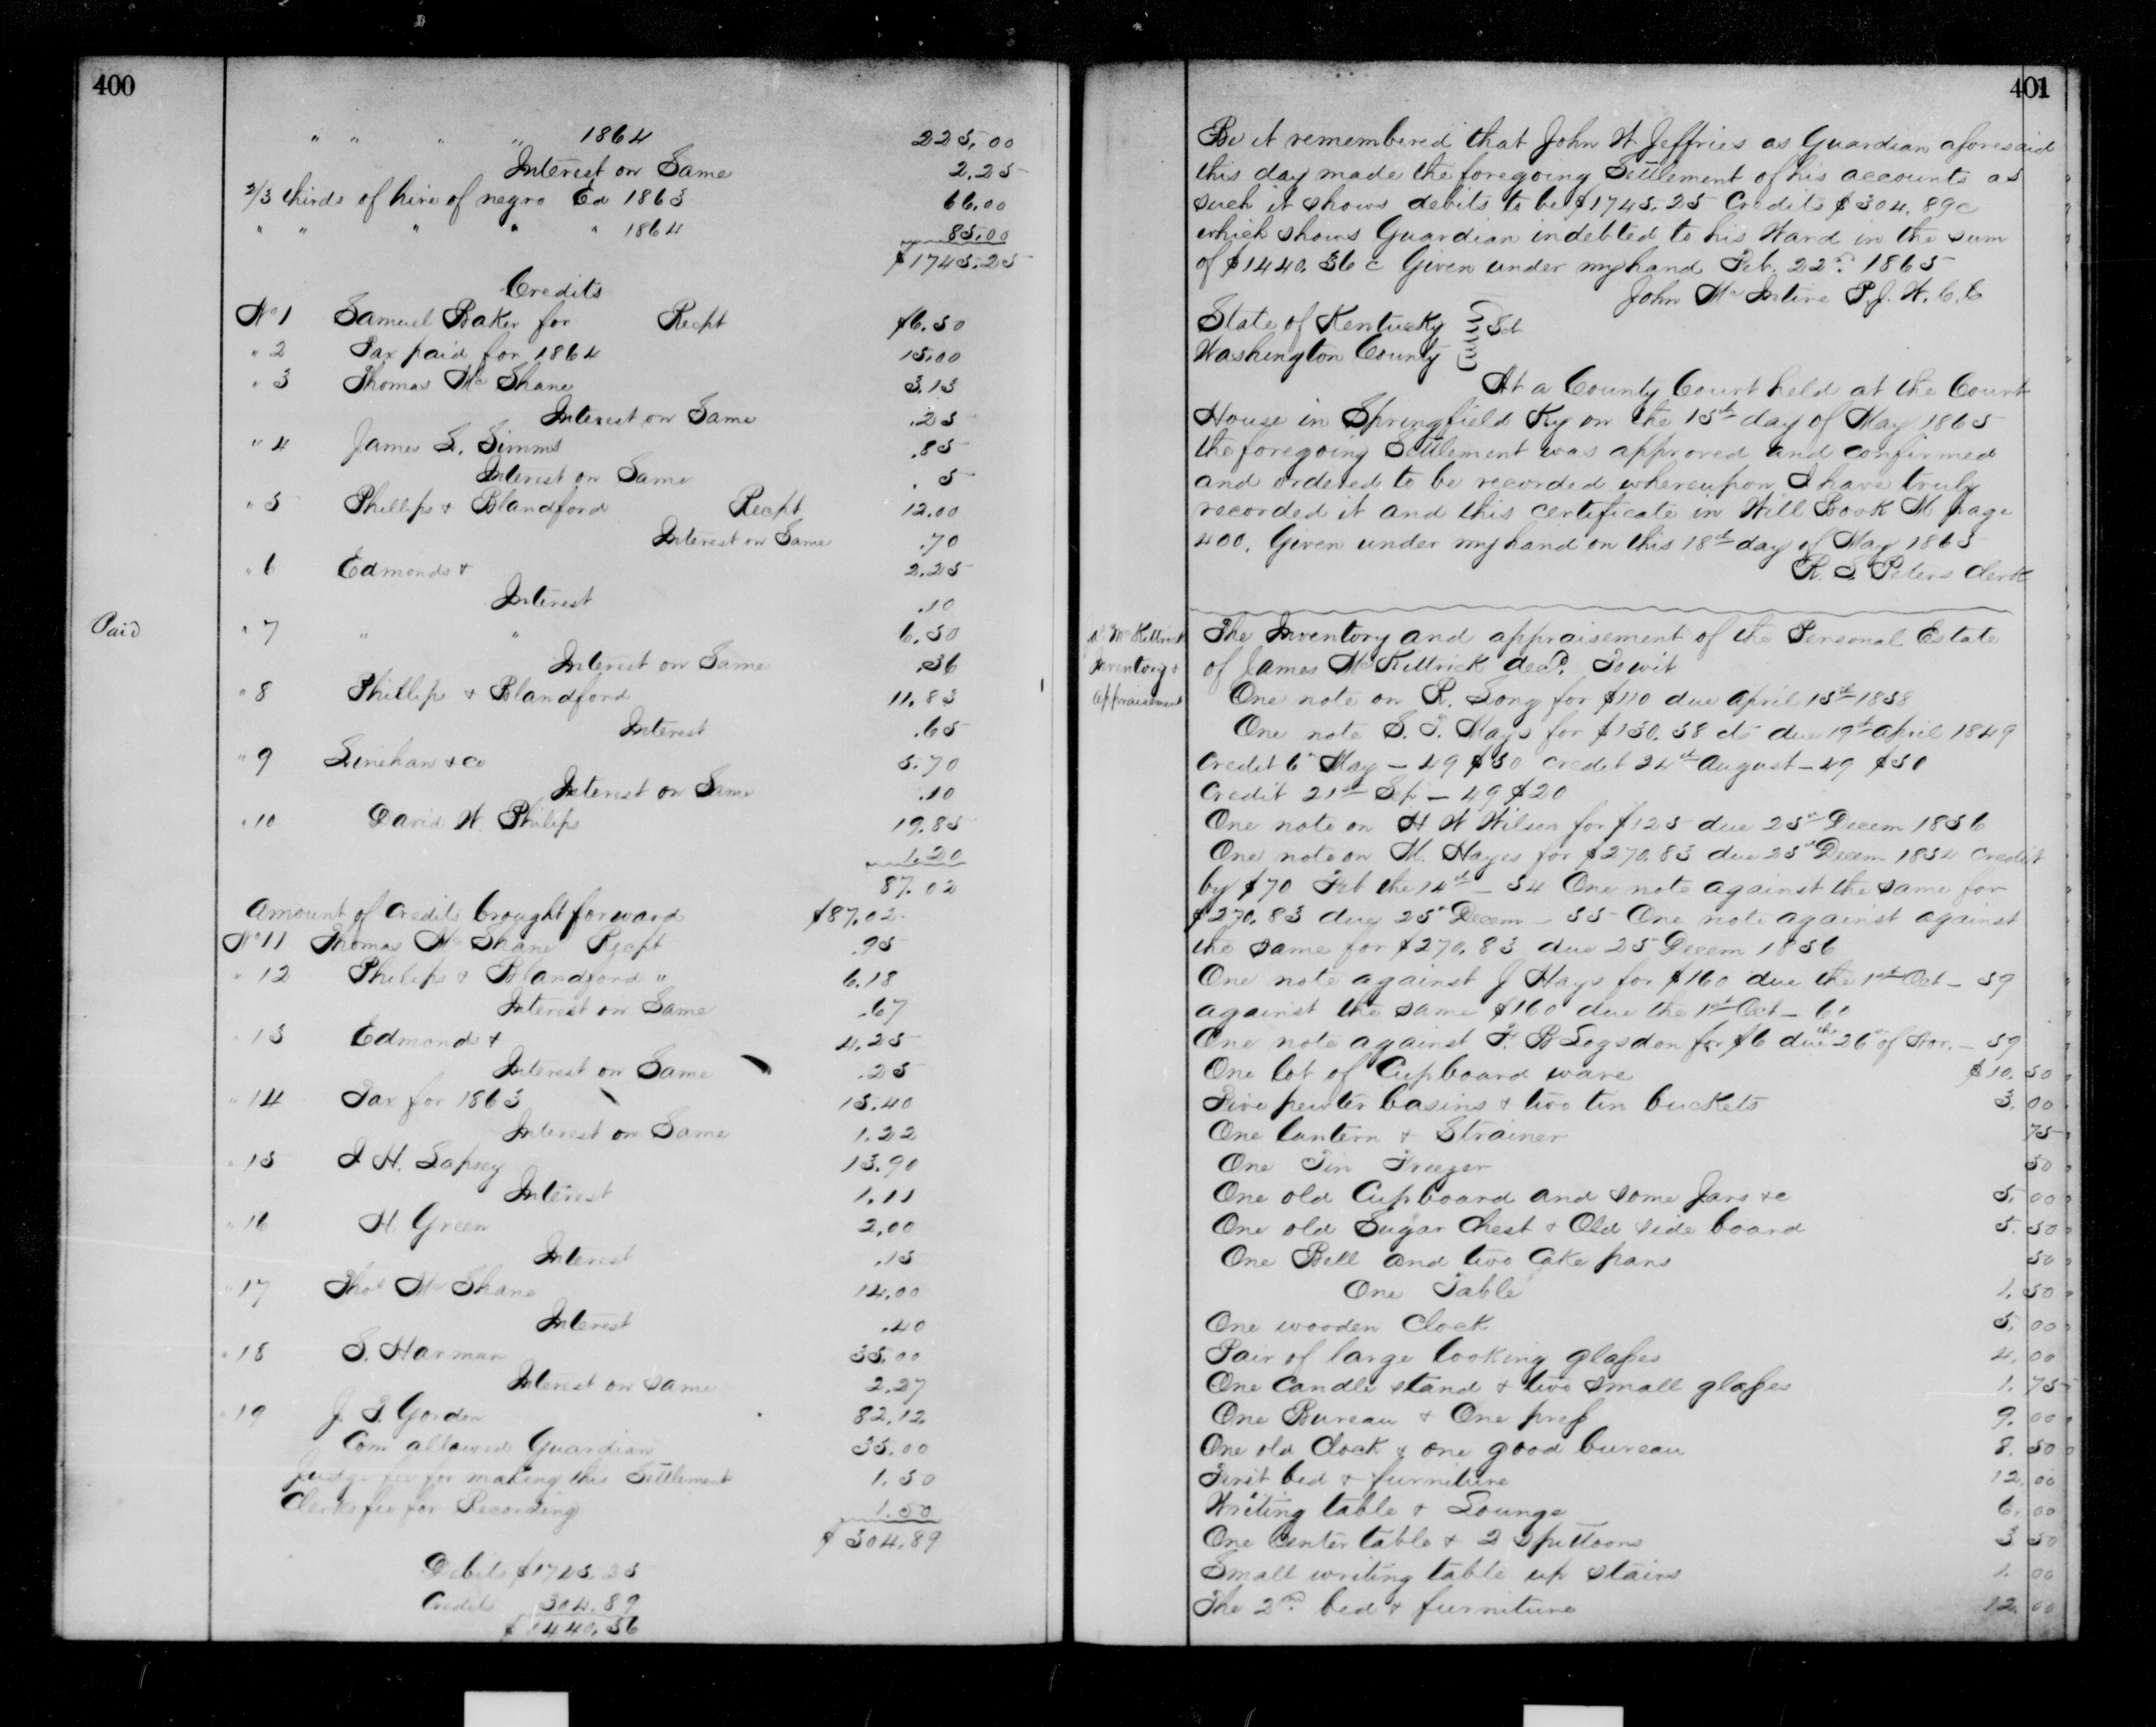 400
" " " " 1864 225.00
Interest on Same 2.25
2/3 thirds of hire of negro Ed 1863 66.00
" " " " " 1864 85.00
$1745.25
Credits
No 1 Samuel Baker for Recpt $6.50
" 2 Tax paid for 1864 15.00
" 3 Thomas Mc Shane 3.15
Interest on Same .25
" 4 James L. Simms .85
Interest on Same . 5
" 5 Phillips & Blandford Recpt 12.00
Interest on Same .70
" 6 Edmonds & 2.25
Interest .10
Paid " 7 " " 6.50
Interest on Same .36
" 8 Phillips & Blandford 11.83
Interest .65
" 9 Linehan & Co 5.70
Interest on Same .10
" 10 David W. Philips 19.85
1.20
87.02
Amount of Credits brought forward $87.02
No 11 Thomas Mc Shane Recpt .95
" 12 Philips & Blandford " 6.18
Interest on Same .67
" 13 Edmond & 4.25
Interest on Same .25
" 14 Tax for 1863 15.40
Interest on Same 1.22
" 15 J H. Lapsey 13.90
Interest 1.11
" 16 H. Green 2.00
Interest .15
" 17 Thos Mc Shane 14.00
Interest .40
" 18 S. Harman 35.00
Interest on same 2.27
" 19 J. T. Gordon 82.12
Com allowed Guardian 35.00
Judge fee for making this Settlement 1.50
Clerks fee for Recording 1.50
$304.89
Debits $1745.25
Credits 304.89
$1440.36
401
Be it remembered that John W Jeffries as Guardian aforesaid
this day made the foregoing Settlement of his accounts as
such it shows debits to be $1745.25 Credits $304.89c
which shows Guardian indebted to his Ward in the sum
of $1440.36 c Given under my hand Feb. 22nd 1865
John Mc Intire P.J. W.C.C
State of Kentucky } Sct
Washington County }
At a County Court held at the Court
House in Springfield Ky on the 15th day of May 1865
the foregoing Settlement was approved and confirmed
and ordered to be recorded whereupon I have truly
recorded it and this certificate in Will Book M page
400. Given under my hand on this 18th day of May 1865
R. S. Peters Clerk
Mc Kittrick
Inventory &
appraisement
The Inventory and appraisement of the Personal Estate
of James Mc Kittrick decd. Towit
One note on R. Song for $110 due april 15th 1858
One note S. T. Mays for $150.58 cts due 19th april 1849
Credit 6th May – 49 $50 credit 24th august – 49 $50
Credit 21st Sep – 49 $20
One note on H W Wilson for $125 due 25th Decem 1856
One note on M. Hayes for $270.83 due 25th Decem 1854 credit
by $70 Feb the 14th – 54 One note against the same for
$270.83 due 25th Decem – 55 One note against against
the same for $270.83 due 25 Decem 1856
One note against J Hays for $160 due the 1st Oct – 59
against the same $160 due the 1st Oct – 60
One note against F. B Logsdon for $6 due the 26th of Nov. – 59
One lot of Cupboard ware $10.50
Five pewter basins & two tin buckets 3.00
One lantern & Strainer 75
One Tin Freezer 50
One old Cupboard and some Jars &c 5.00
One old Sugar Chest & Old side board 5.50
One Bell and two Cake pans 50
One Table 1.50
One wooden Clock 5.00
Pair of large looking glasses 4.00
One Candle stand & two small glasses 1.75
One Bureau & One press 9.00
One old Clock & one good bureau 8.50
First bed & furniture 12.00
Writing table & Lounge 6.00
One Center table & 2 Spittoons 3 50
Small writing table up stairs 1.00
The 2nd bed & furniture 12.00